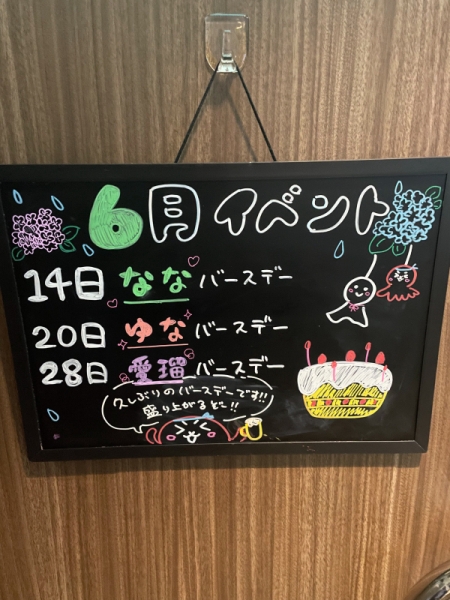 6月イベント
14日 なな バースデー
20日 ゆな バースデー
28日 愛瑠 バースデー
久しぶりのバースデーです!!
盛り上がるどー!!